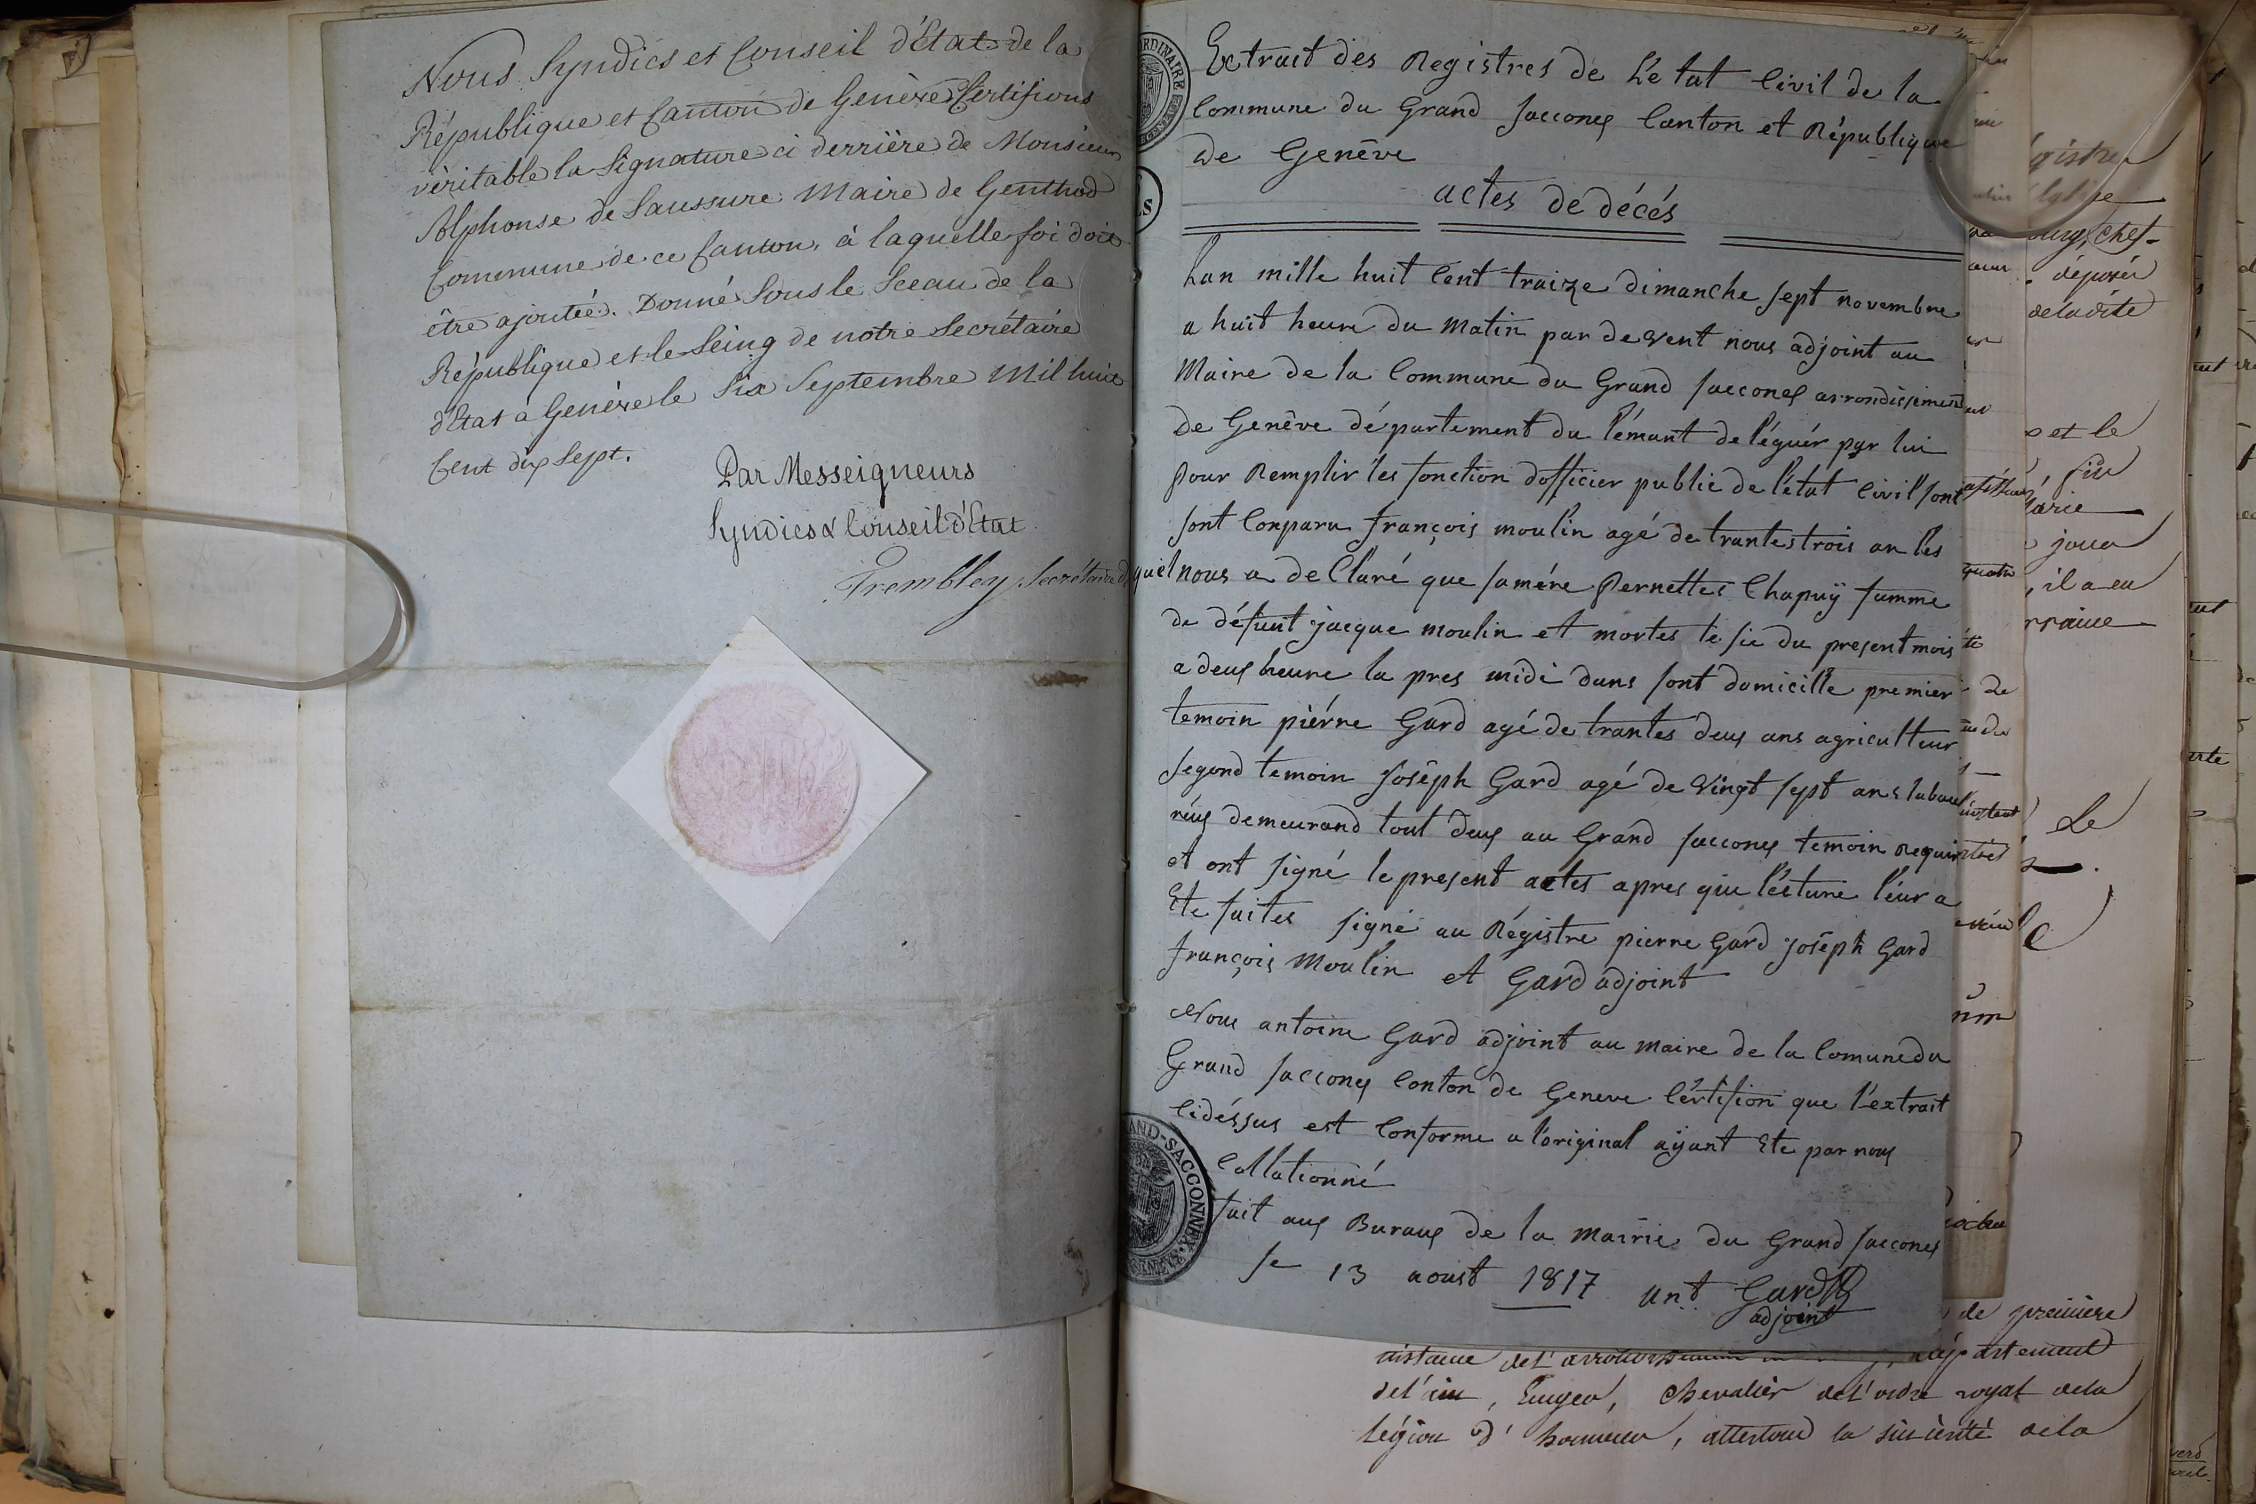 Nous Syndics et Conseil d'Etat de la
République et Canton de Genève Certifions
véritable la Signature ci derrière de Monsieur
Alphonse de Saussure Maire de Genthod
Commune de ce Canton, à laquelle foi doit
être ajoutée. Donné sous le Sceau de la
République et le Seing de notre Secrétaire
d'Etat à Genève le Six Septembre Mil huit
Cent dix Sept.
Par Messeigneurs
Syndics & Conseil d'Etat
Trembley Secrétaire d
Extrait des Registres de L'état Civil de la
Commune du Grand Sacconex Canton et République
de Genêve
actes de décés
Lan mille huit Cent traize dimanche sept novembre
a huit heure du matin par devent nous adjoint au
Maire de la Commune du Grand Sacconex arrondissement
de Genêve département du l'émant de léguér par lui
pour Remplir les fonction dofficier public de l'état Civil sont
sont Conparu françois moulin agé de trantestrois an les
quel nous a de Claré que samére Pernettes Chapuÿ famme
de défunt jacque moulin et mortes le sis du present mois
a deux heure la pres midi dans sont domicille premier
temoin piérre Gard agé de trantes deux ans agriculteur
segond temoin Joséph Gard agé de vingt sept ans labou
reux demeurand tout deux au Grand Sacconex temoin Requir
et ont signé le present actes apres qiu l'écture léur a
Ete faites signé au Régistre pierre Gard joséph Gard
françois Moulin et Gard adjoint
Nous antoine Gard adjoint au maire de la Comune du
Grand Sacconex Conton de Geneve Cértifion que l'extrait
cidéssus est Conforme a l'original aÿant Ete par nous
Collationné
fait aux Buraux de la Mairie du Grand Sacconex
Le 13 aoust 1817 ant Gard
adjoint
GRAND-SACCONNEX
de première
département
de l'ain, Chevalier de l'ordre royal de la
Légion d'honneur, attestons la sincérité de la